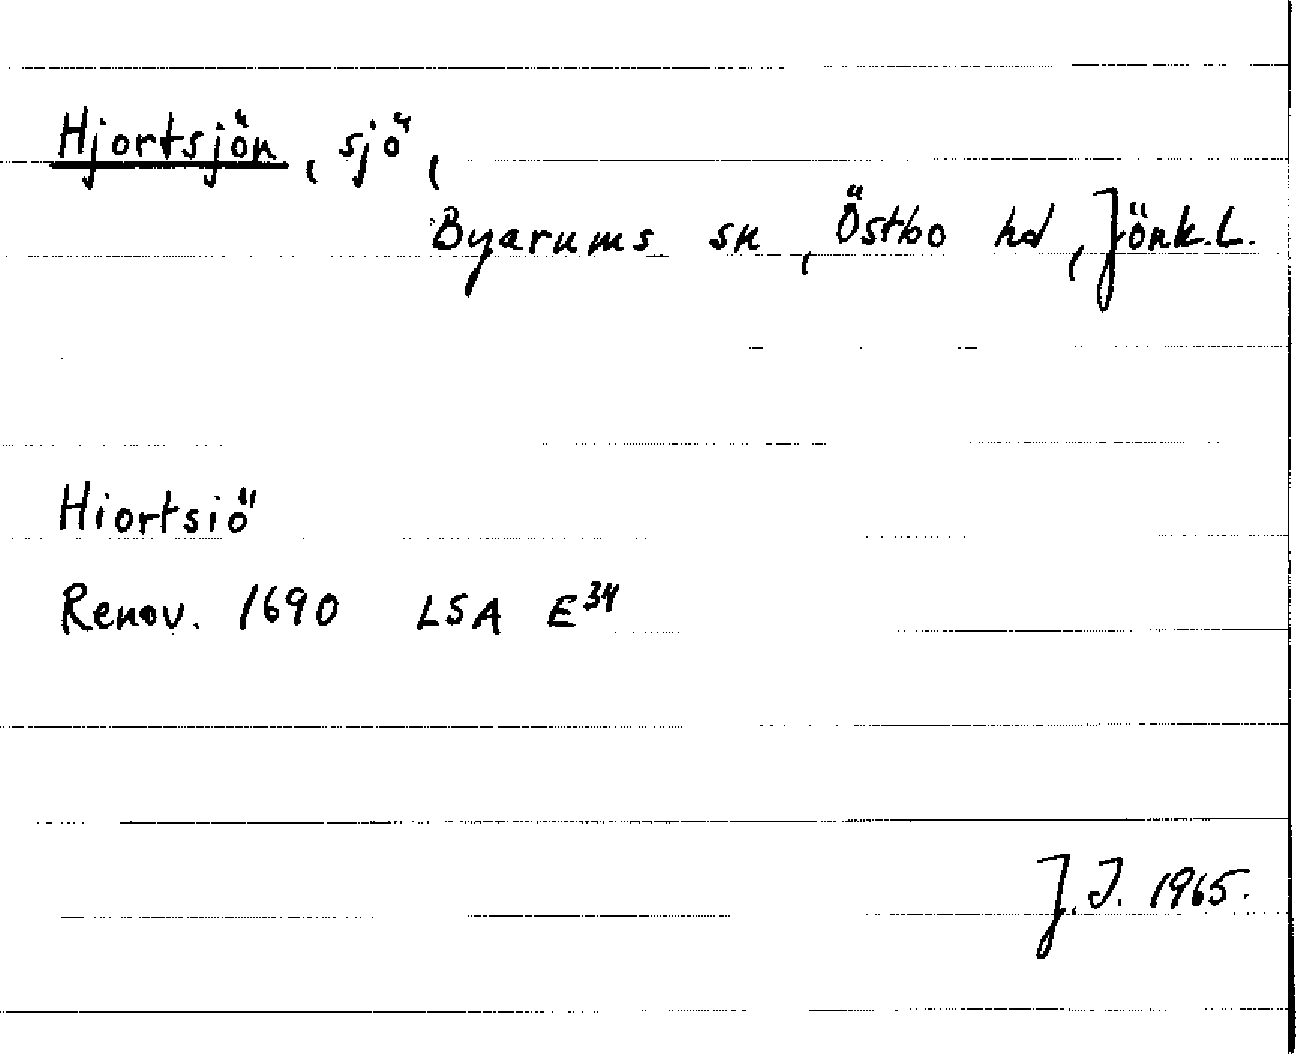 Hjortsjön, sjö,
Byarums sn, Östbo hd, Jönk.L.
Hiortsiö
Renov. 1690 LSA E³⁴
J.I. 1965.